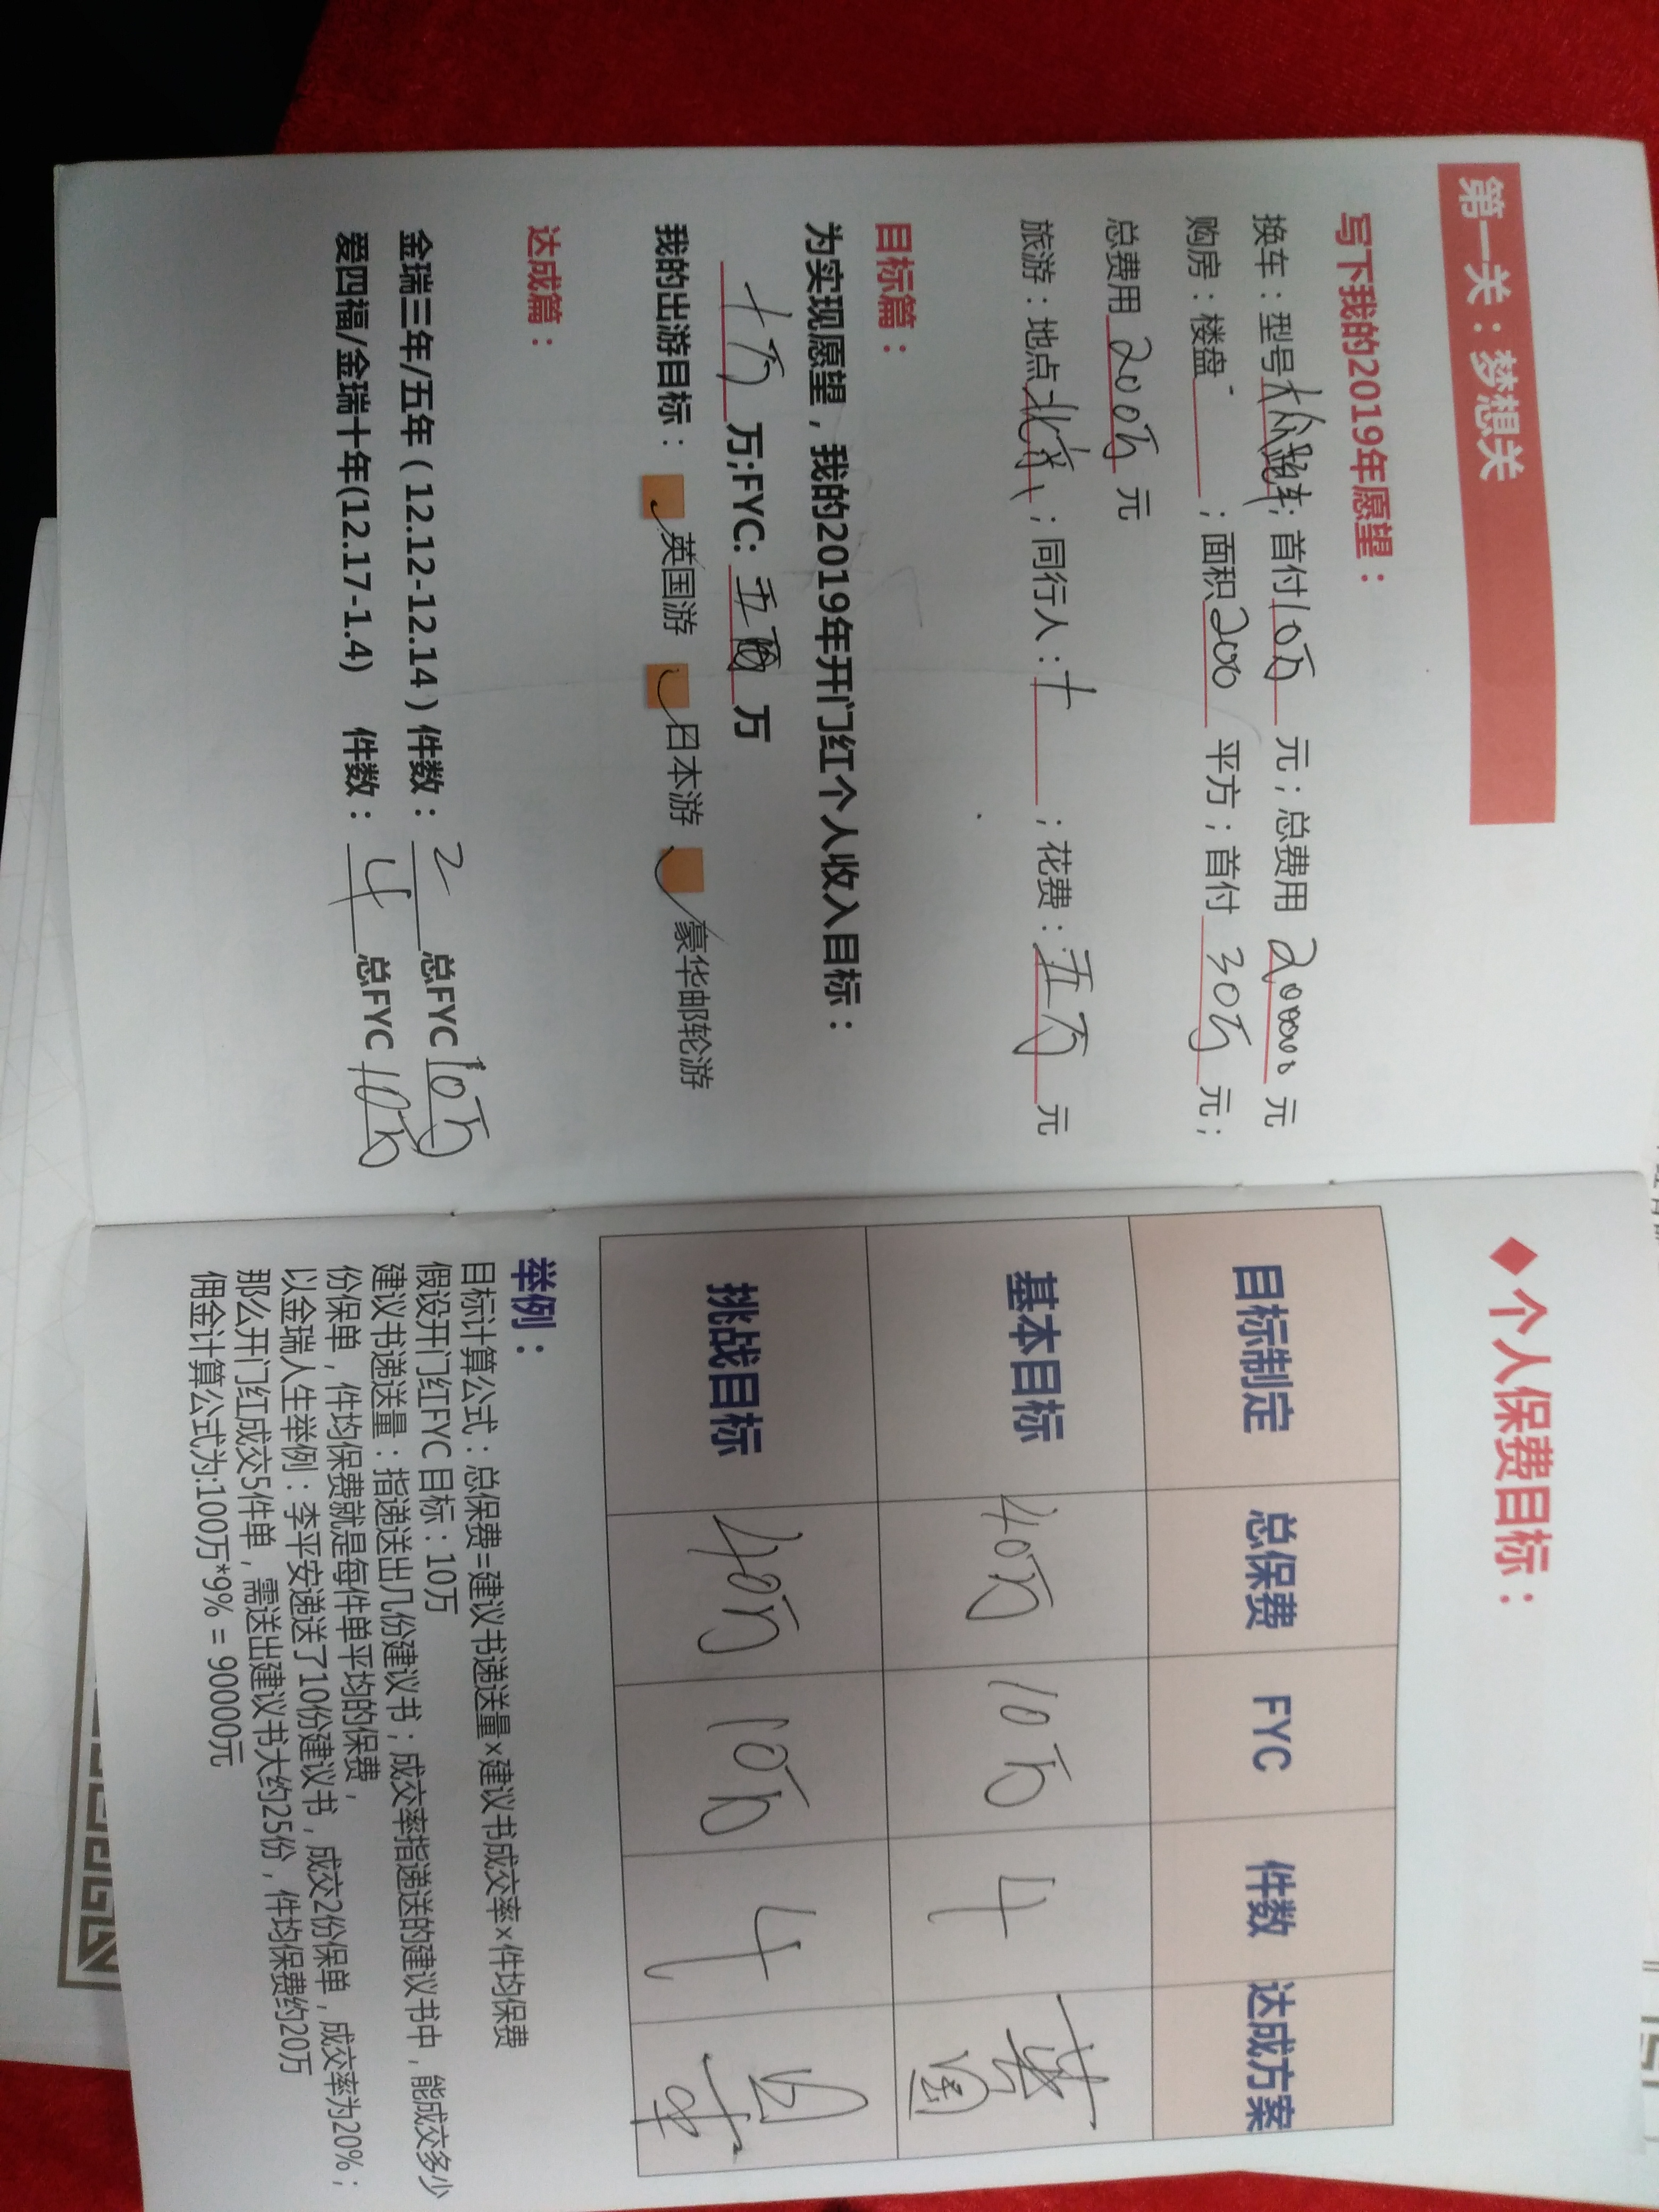 第一关：梦想关
写下我的2019年愿望：
换车：型号大众跑车；首付10万元；总费用200000元
购房：楼盘 ；面积200平方；首付30万元；
总费用200万元
旅游：地点北京；同行人：十；花费：五万元
目标篇：
为实现愿望，我的2019年开门红个人收入目标：
十万万;FYC:五万
我的出游目标： 英国游 日本游 豪华邮轮游
达成篇：
金瑞三年/五年（12.12-12.14）件数：2总FYC10万
爱四福/金瑞十年(12.17-1.4) 件数：4总FYC10万
◆个人保费目标：
目标制定 总保费 FYC 件数 达成方案
基本目标 40万 10万 4 英国
挑战目标 40万 10万 4 日本
举例：
目标计算公式：总保费=建议书递送量×建议书成交率×件均保费
假设开门红FYC目标：10万
建议书递送量：指递送出几份建议书；成交率指递送的建议书中，能成交多少
份保单，件均保费就是每件单平均的保费，
以金瑞人生举例：李平安递送了10份建议书，成交2份保单，成交率为20%；
那么开门红成交5件单，需送出建议书大约25份，件均保费约20万
佣金计算公式为:100万*9% = 90000元